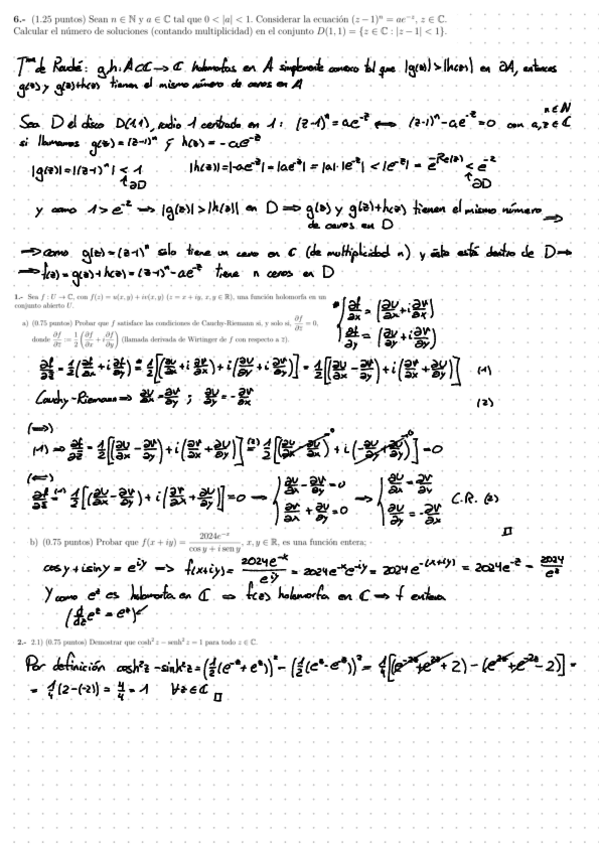 6.- (1.25 puntos) Sean n ∈ ℕ y a ∈ ℂ tal que 0 < |a| < 1. Considerar la ecuación (z − 1)ⁿ = ae⁻ᶻ, z ∈ ℂ.
Calcular el número de soluciones (contando multiplicidad) en el conjunto D(1, 1) = {z ∈ ℂ : |z − 1| < 1}.
Tᵐᵃ de Rouché: g,h: A⊂ℂ → ℂ holomorfas en A simplemente conexo tal que |g(z)|>|h(z)| en ∂A, entonces
g(z) y g(z)+h(z) tienen el mismo número de ceros en A
Sea D el disco D(1,1), radio 1 centrado en 1: (z-1)ⁿ = ae⁻ᶻ ⟺ (z-1)ⁿ - ae⁻ᶻ = 0 con a,z∈ℂ n∈ℕ
si llamamos g(z) = (z-1)ⁿ y h(z) = -ae⁻ᶻ
|g(z)| = |(z-1)ⁿ| < 1 |h(z)| = |-ae⁻ᶻ| = |ae⁻ᶻ| = |a|·|e⁻ᶻ| < |e⁻ᶻ| = e^(-Re(z)) < e⁻²
↑∂D ↑∂D
y como 1 > e⁻² → |g(z)| > |h(z)| en D ⟹ g(z) y g(z)+h(z) tienen el mismo número ⟹
de ceros en D
⟹ como g(z) = (z-1)ⁿ solo tiene un cero en ℂ (de multiplicidad n) y éste está dentro de D ⟹
⟹ f(z) = g(z)+h(z) = (z-1)ⁿ - ae⁻ᶻ tiene n ceros en D
1.- Sea f : U → ℂ, con f(z) = u(x, y) + iv(x, y) (z = x + iy, x, y ∈ ℝ), una función holomorfa en un
conjunto abierto U.
* { ∂f/∂x = (∂u/∂x + i ∂v/∂x)
∂f/∂y = (∂u/∂y + i ∂v/∂y)
a) (0.75 puntos) Probar que f satisface las condiciones de Cauchy-Riemann si, y solo si, ∂f/∂z̄ = 0,
donde ∂f/∂z̄ := 1/2 (∂f/∂x + i ∂f/∂y) (llamada derivada de Wirtinger de f con respecto a z̄).
∂f/∂z̄ = 1/2 (∂f/∂x + i ∂f/∂y) =* 1/2 [(∂u/∂x + i ∂v/∂x) + i(∂u/∂y + i ∂v/∂y)] = 1/2 [(∂u/∂x - ∂v/∂y) + i(∂v/∂x + ∂u/∂y)] (1)
Cauchy-Riemann ⟹ ∂u/∂x = ∂v/∂y ; ∂u/∂y = -∂v/∂x (2)
(⟹)
(1) ⟹ ∂f/∂z̄ = 1/2 [(∂u/∂x - ∂v/∂y) + i(∂v/∂x + ∂u/∂y)] =(2) 1/2 [(∂u/∂x - ∂u/∂x) + i(-∂u/∂y + ∂u/∂y)] = 0
(⟸)
∂f/∂z̄ =(1) 1/2 [(∂u/∂x - ∂v/∂y) + i(∂v/∂x + ∂u/∂y)] = 0 → { ∂u/∂x - ∂v/∂y = 0 → { ∂u/∂x = ∂v/∂y C.R. (2)
∂v/∂x + ∂u/∂y = 0 ∂u/∂y = -∂v/∂x
□
b) (0.75 puntos) Probar que f(x + iy) = 2024e⁻ˣ / (cos y + i sen y), x, y ∈ ℝ, es una función entera;
cosy + isiny = e^(iy) ⟹ f(x+iy) = 2024e⁻ˣ/e^(iy) = 2024e⁻ˣe^(-iy) = 2024e^(-(x+iy)) = 2024e⁻ᶻ = 2024/eᶻ
Y como eᶻ es holomorfa en ℂ ⟹ f(z) holomorfa en ℂ → f entera
(d/dz eᶻ = eᶻ)
2.- 2.1) (0.75 puntos) Demostrar que cosh² z − senh² z = 1 para todo z ∈ ℂ.
Por definición cosh²z - sinh²z = (1/2(e⁻ᶻ + eᶻ))² - (1/2(eᶻ - e⁻ᶻ))² = 1/4 [(e⁻²ᶻ + e²ᶻ + 2) - (e²ᶻ + e⁻²ᶻ - 2)] =
= 1/4 (2-(-2)) = 4/4 = 1 ∀z∈ℂ □